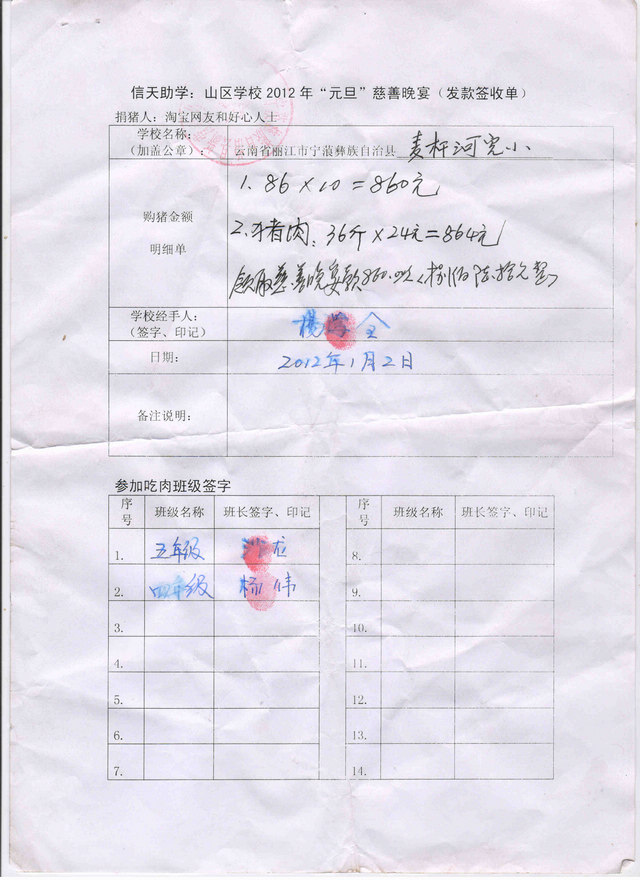 信天助学：山区学校2012年“元旦”慈善晚宴（发款签收单）
捐猪人：淘宝网友和好心人士
学校名称：
（加盖公章）：
云南省丽江市宁蒗彝族自治县 麦杆河完小
购猪金额
明细单
1. 86×10=860元
2. 猪肉：36斤×24元=864元
领取慈善晚宴款860.00（捌佰陆拾元整）
学校经手人：
（签字、印记）
杨 全
日期：
2012年1月2日
备注说明：
参加吃肉班级签字
序号 班级名称 班长签字、印记 序号 班级名称 班长签字、印记
1. 五年级 龙 8.
2. 四年级 杨伟 9.
3. 10.
4. 11.
5. 12.
6. 13.
7. 14.